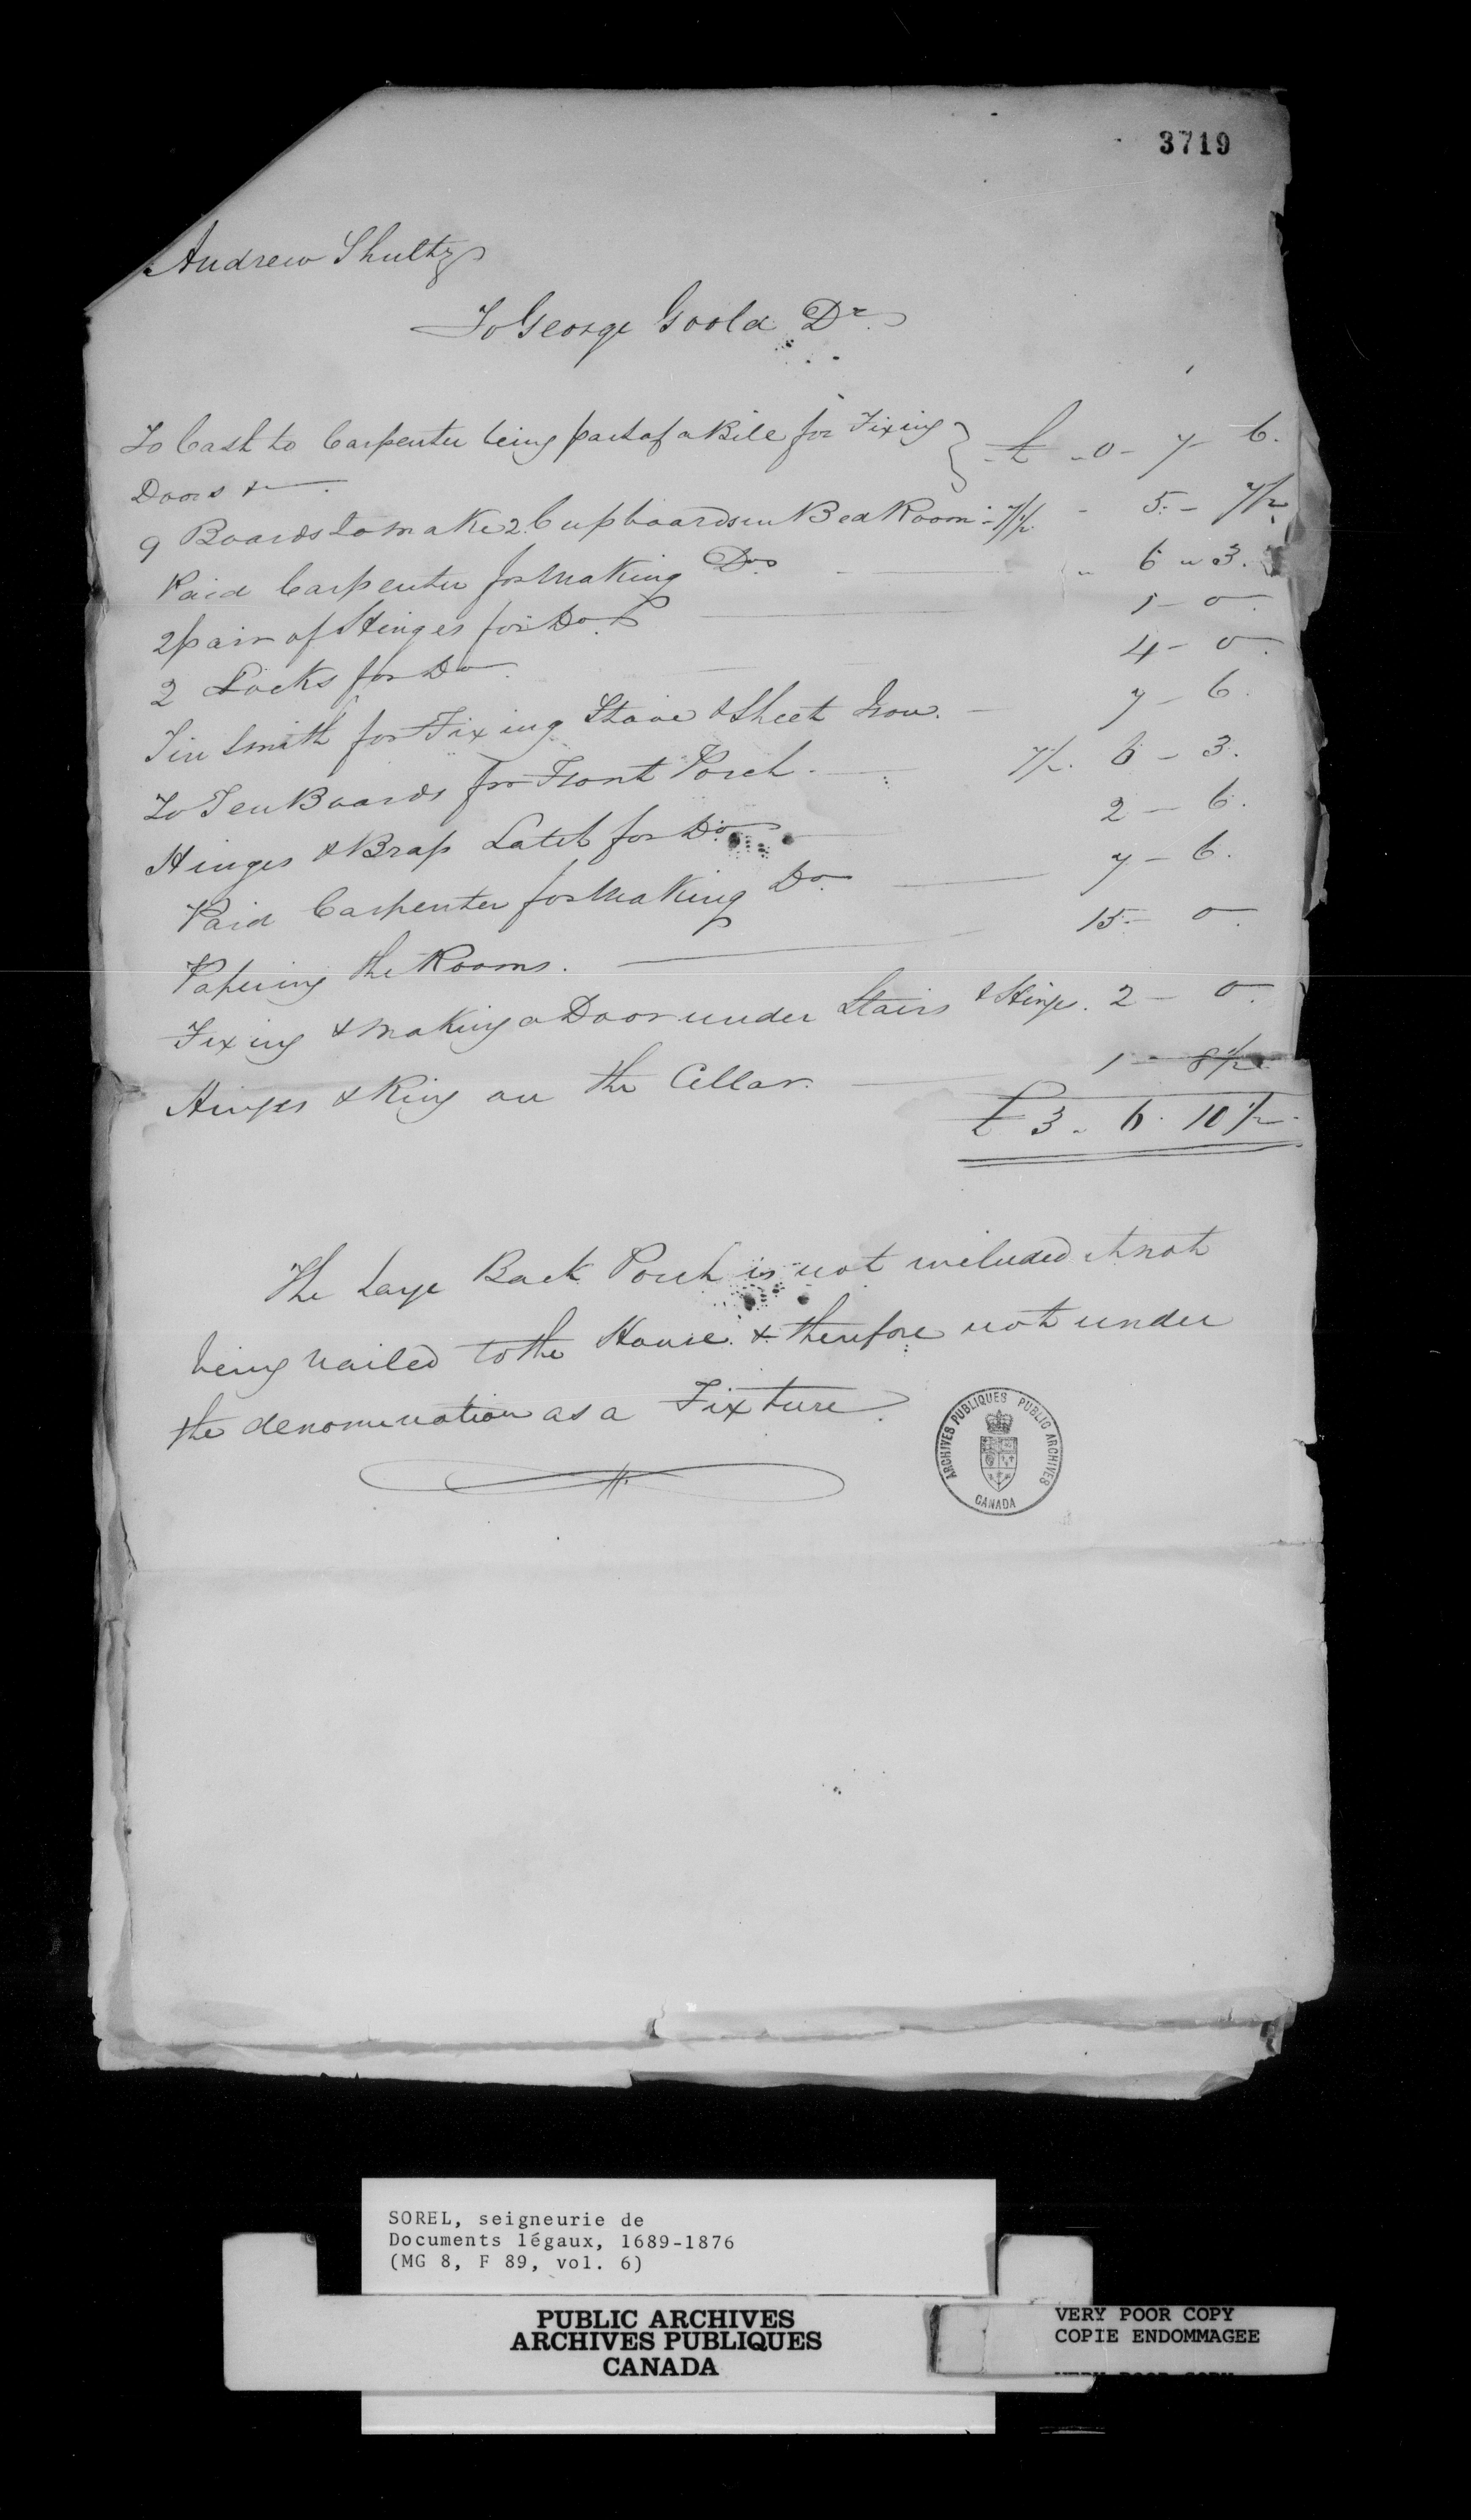 3719
Andrew Shultz
To George Goold Dr.
To Cash to Carpenter being part of a Bill for Fixing
Doors &c. } £ 0 - 7 - 6.
9 Boards to make 2 Cupboards in Bed Room - 7½. - 5. - 7½
Paid Carpenter for Making Do. 6 " 3.
2 pair of Hinges for Do. 1 - 0.
2 Locks for Do. 4 - 0.
Tin Smith for Fixing Stove & Sheet Iron. - 7 - 6.
To Ten Boards for Front Porch. 7½. 6 - 3.
Hinges & Brass Latch for Do. 2 - 6.
Paid Carpenter for Making Do. 7 - 6.
Papering the Rooms. 15 - 0.
Fixing & making a Door under Stairs & Hinges. 2 - 0.
Hinges & Ring on the Cellar. 1 - 8½
£ 3. 6. 10½.
The Large Back Porch is not included it not
being nailed to the House. & therefore not under
the denomination as a Fixture.
ARCHIVES PUBLIQUES PUBLIC ARCHIVES
CANADA
SOREL, seigneurie de
Documents légaux, 1689-1876
(MG 8, F 89, vol. 6)
PUBLIC ARCHIVES
ARCHIVES PUBLIQUES
CANADA
VERY POOR COPY
COPIE ENDOMMAGEE
VERY POOR COPY